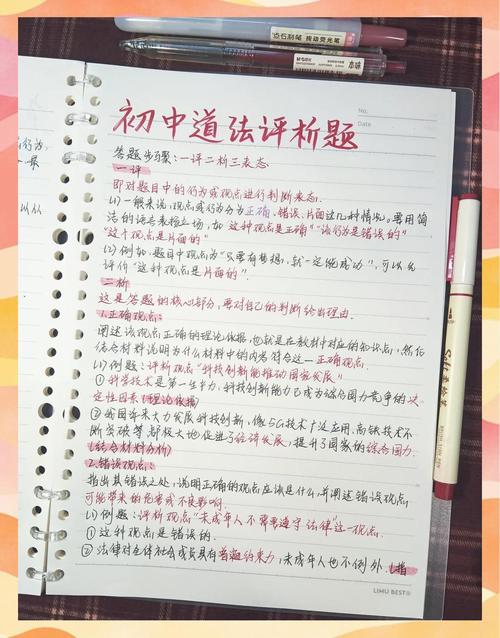 点石刻笔 按动荧光笔
本味
No.
Date
初中道法评析题
答题步骤：一评二析三表态
一评
即对题目中的行为或观点进行判断表态.
(1)一般来说，观点或行为分为正确、错误、片面这几种情况。要用简
洁的语言表明立场，如"这种观点是正确""该行为是错误的"
"这个观点是片面的"
(2)例如，题目中观点为"只要有梦想，就一定能成功"，可以先
评价"这种观点是片面的".
二析
这是答题的核心部分，要对自己的判断给出理由.
1.正确观点：
阐述该观点正确的理论依据，也就是在教材中对应的知识点，然后
结合材料说明为什么材料中的内容符合这一正确观点.
(1)例题：评析观点"科技创新能推动国家发展"
①科学技术是第一生产力.科技创新能力已成为综合国力竞争的决
定性因素(理论依据)
②我国近年来大力发展科技创新，像5G技术广泛应用、高铁技术不
断突破等都极大地促进了经济发展，提升了国家的综合国力.
(结合材料分析)
2.错误观点：
指出其错误之处，说明正确的观点应该是什么，并阐述错误观点
可能带来的危害或不良影响.
(1)例题：评析观点"未成年人不需要遵守法律"这一观点.
①这种观点是错误的.
②法律对全体社会成员具有普遍约束力，未成年人也不例外.(指
LIMU BEST®
行为，
以从